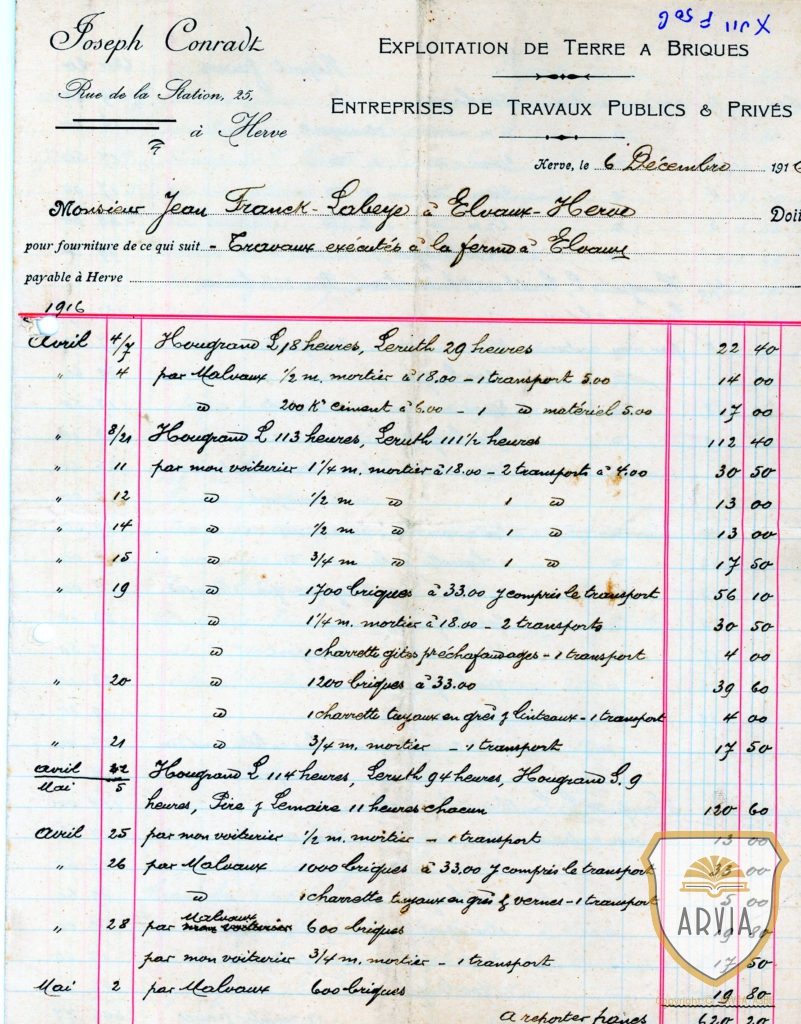 Joseph Conradt
Rue de la Station, 25,
à Herve
EXPLOITATION DE TERRE A BRIQUES
ENTREPRISES DE TRAVAUX PUBLICS & PRIVÉS
Herve, le 6 Décembre 191
Monsieur Jean Franck-Labeye à Elvaux-Herve Doit
pour fourniture de ce qui suit - Travaux exécutés à la ferme à Elvaux
payable à Herve
1916
Avril 4/7 Hougrand L 18 heures, Leruth 29 heures 22 40
" 4 par Malvaux 1/2 m. mortier à 18.00 - 1 transport 5.00 14 00
ɷ 200 K° ciment à 6.00 - 1 ɷ matériel 5.00 17 00
" 8/21 Hougrand L 113 heures, Leruth 111 1/2 heures 112 40
" 11 par mon voiturier 1 1/4 m. mortier à 18.00 - 2 transports à 4.00 30 50
" 12 ɷ 1/2 m ɷ 1 ɷ 13 00
" 14 ɷ 1/2 m ɷ 1 ɷ 13 00
" 15 ɷ 3/4 m ɷ 1 ɷ 17 50
" 19 ɷ 1700 briques à 33.00 y compris le transport 56 10
ɷ 1 1/4 m. mortier à 18.00 - 2 transports 30 50
ɷ 1 charrette gites pr échafaudages - 1 transport 4 00
" 20 ɷ 1200 briques à 33.00 39 60
ɷ 1 charrette tuyaux en grès & linteaux - 1 transport 4 00
" 21 ɷ 3/4 m. mortier - 1 transport 17 50
Avril 22 Hougrand L 114 heures, Leruth 94 heures, Hougrand S. 9
Mai 5 heures, Pire & Lemaire 11 heures chacun 120 60
Avril 25 par mon voiturier 1/2 m. mortier - 1 transport 13 00
" 26 par Malvaux 1000 briques à 33.00 y compris le transport 33 00
ɷ 1 charrette tuyaux en grès & vernes - 1 transport 5 00
" 28 par Malvaux 600 briques 19 80
par mon voiturier 3/4 m. mortier - 1 transport 17 50
Mai 2 par Malvaux 600 briques 19 80
A reporter francs 620 20
ARVIA